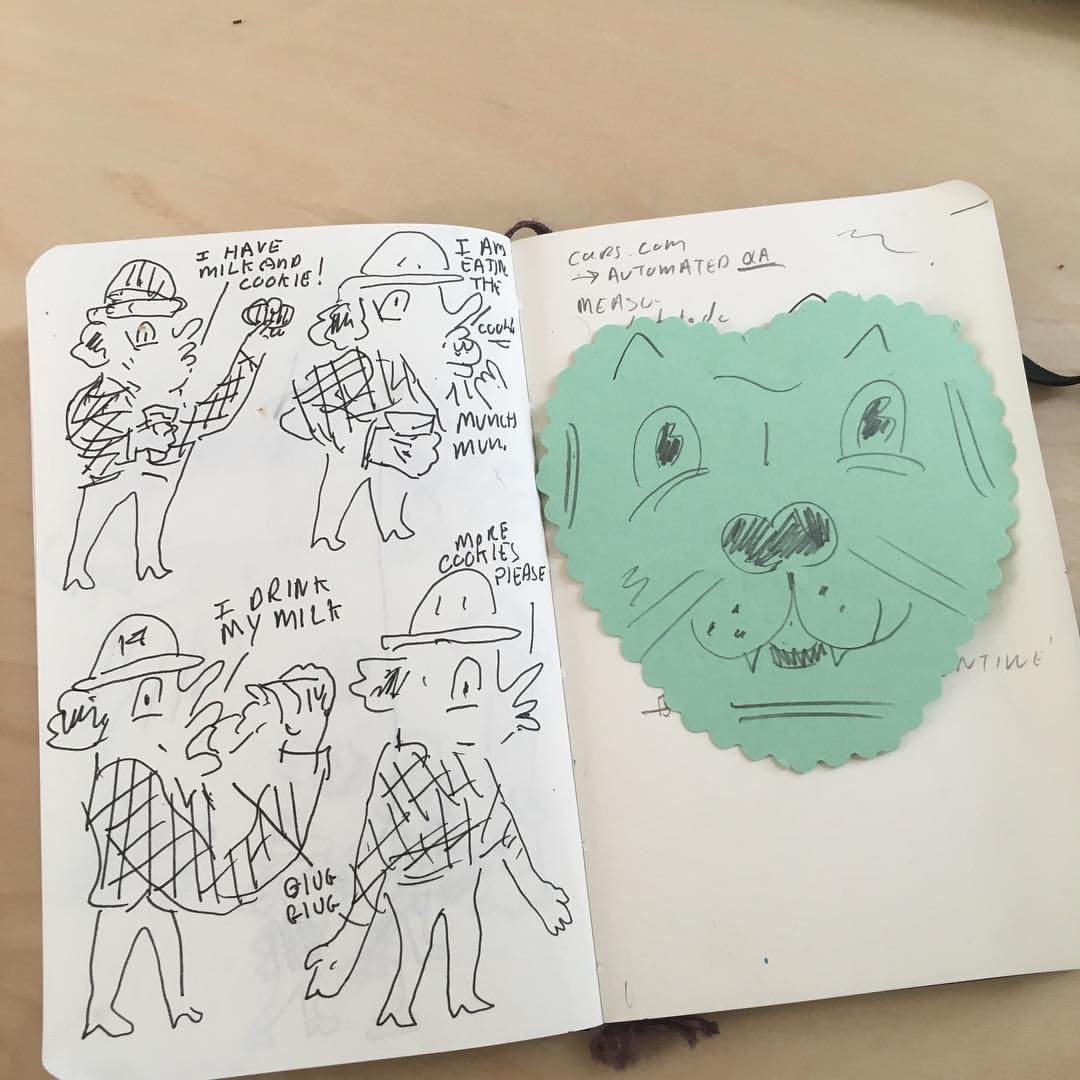 I HAVE
MILK AND
COOKIE!
I AM
EATIN
THE
MUNCH
MUN.
I DRINK
MY MILK
GLUG
GLUG
MORE
COOKIES
PLEASE
CARS.COM
→ AUTOMATED QA
MEASU
NTINE